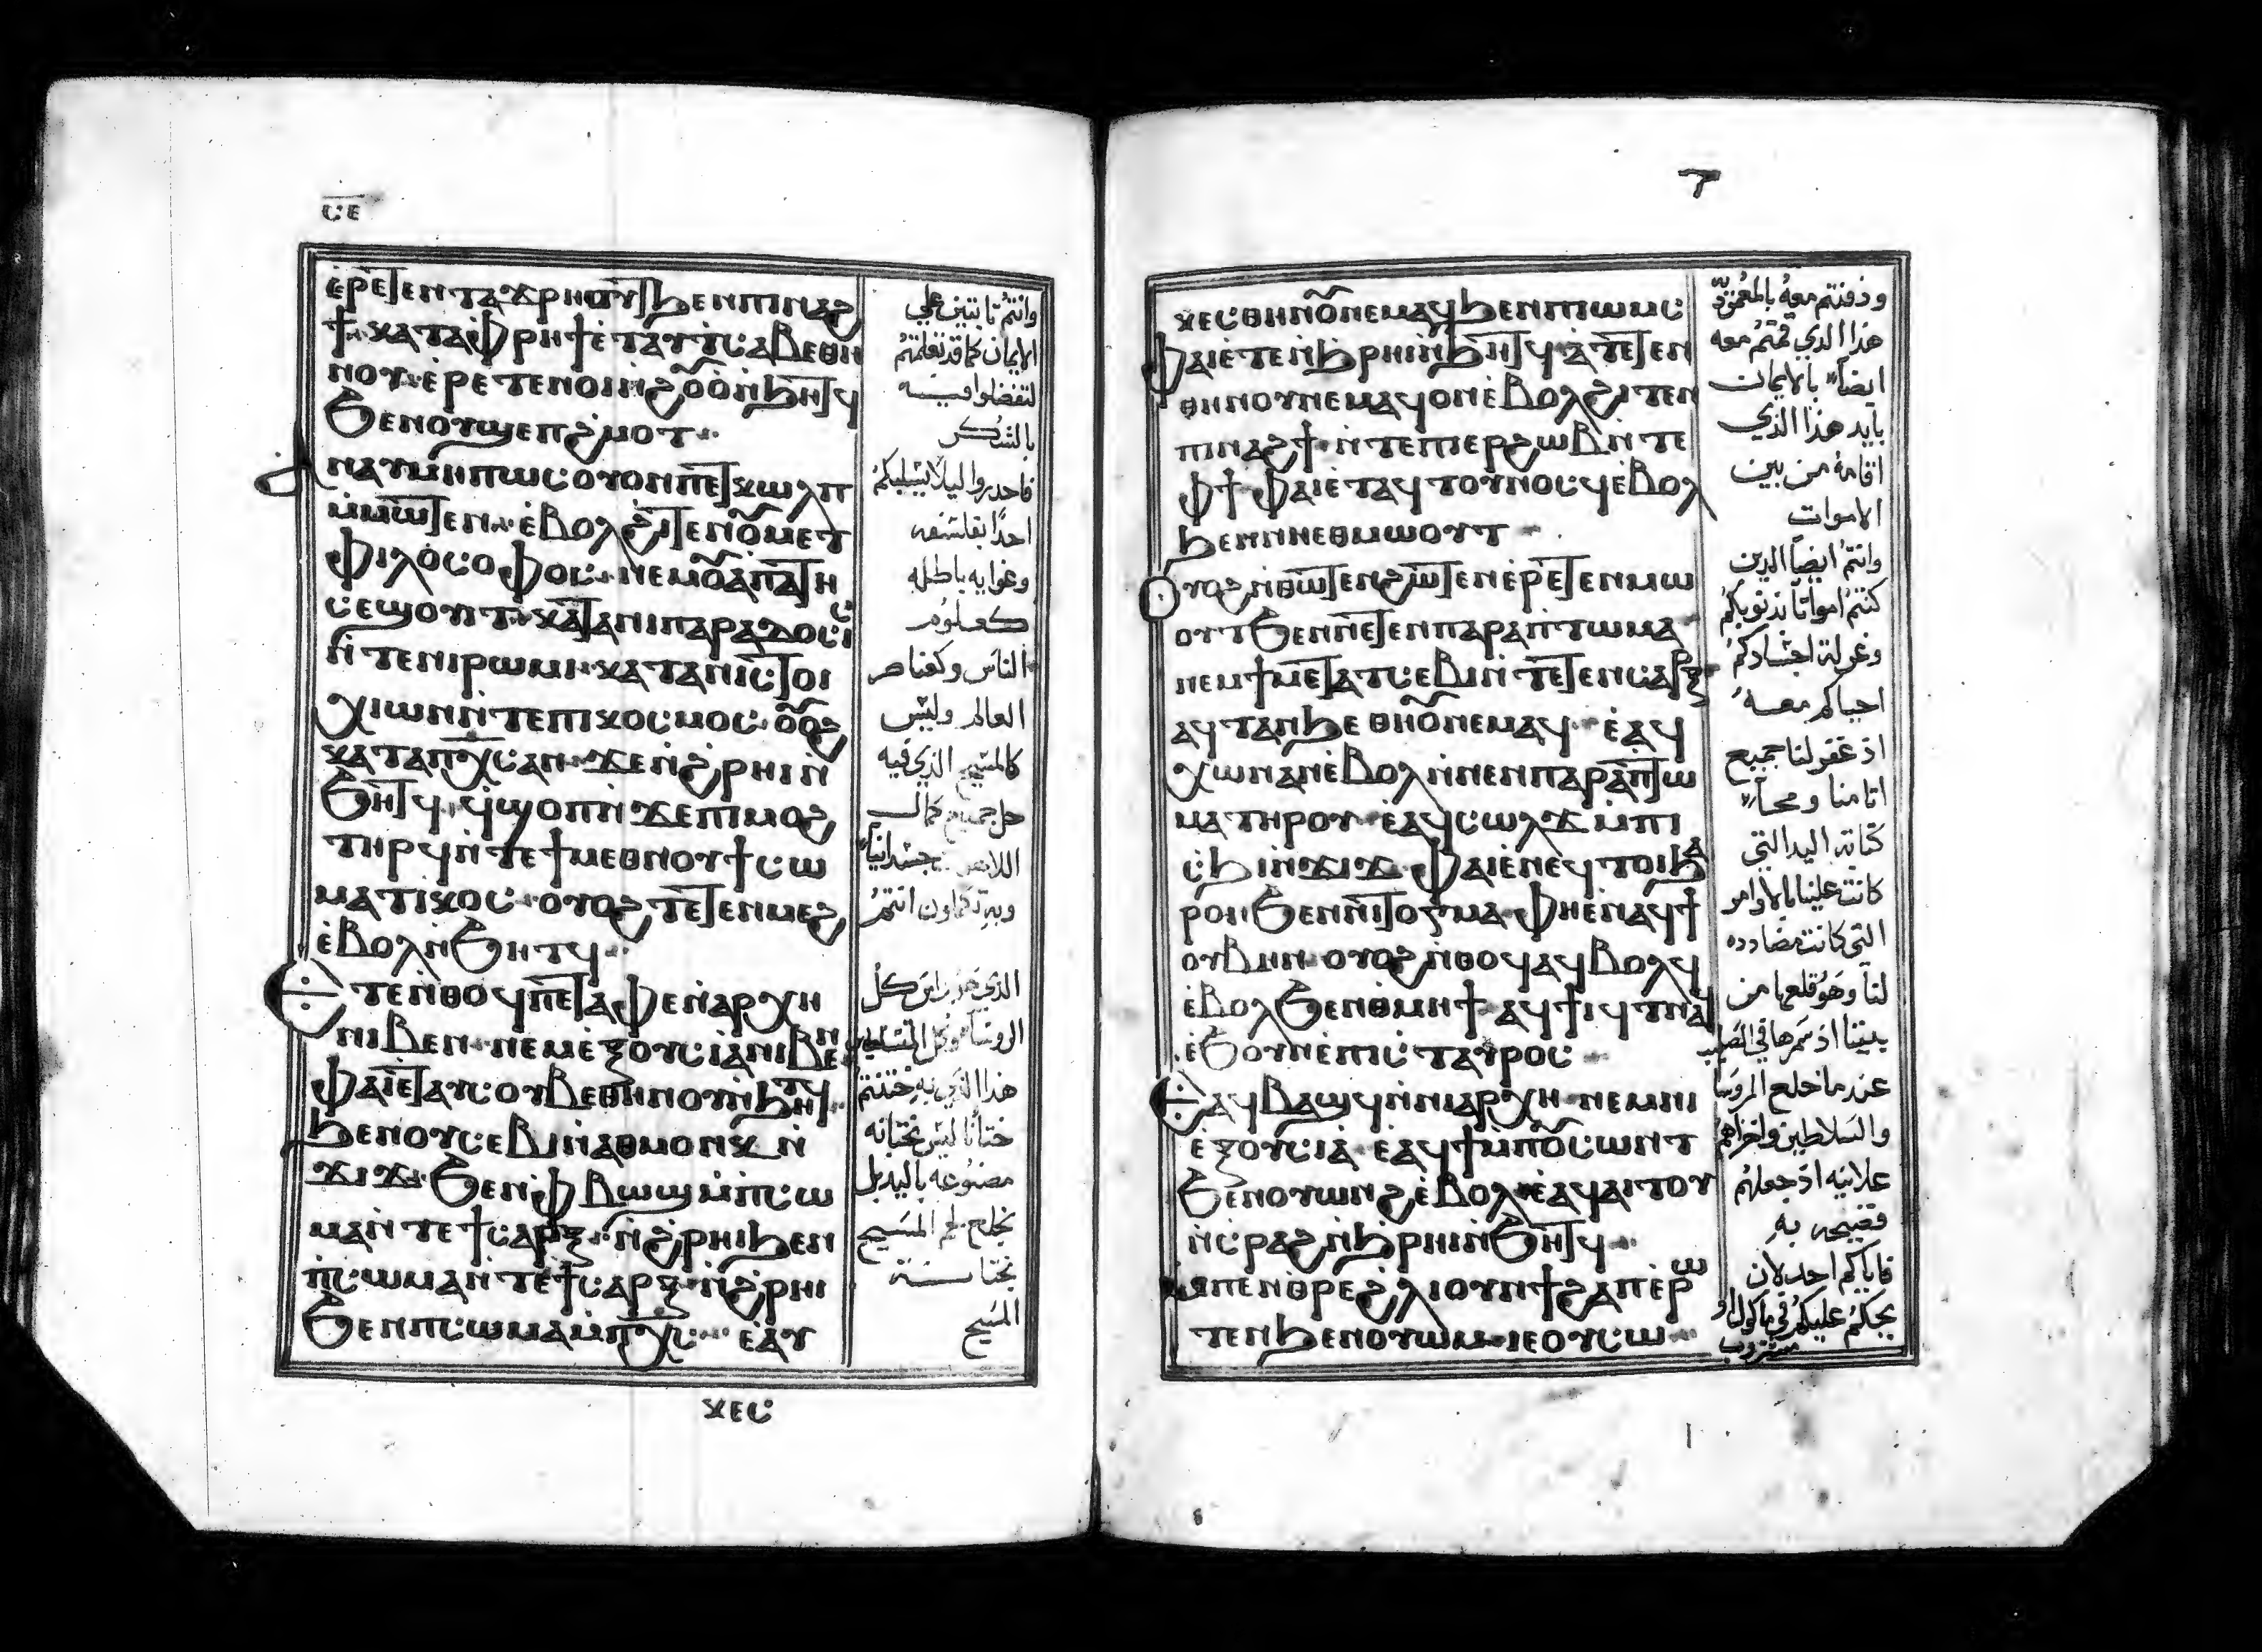 ⲥⲉ
ⲉ̀ⲣⲉⲧⲉⲛⲧⲁϫⲣⲏⲟⲩⲧ ϧⲉⲛⲡⲓⲛⲁϩ
ϯ ⲕⲁⲧⲁⲫⲣⲏϯ ⲉ̀ⲧⲁⲩⲧⲥⲁⲃⲉⲑⲏ
ⲛⲟⲩ ⲉ̀ⲣⲉⲧⲉⲛⲟⲓⲛ̀ϩⲟⲩⲟ̀ ⲛ̀ϧⲏⲧϥ
ϧⲉⲛⲟⲩϣⲉⲡϩ̀ⲙⲟⲧ
ⲁⲛⲁⲩ ⲙⲏⲡⲱⲥ ⲟⲩⲟⲛⲡⲉⲧⲕⲱⲗⲡ
ⲙ̀ⲙⲱⲧⲉⲛ ⲉ̀ⲃⲟⲗϩⲓⲧⲉⲛⲟⲩⲙⲉⲧ
ⲫⲓⲗⲟ̀ⲥⲟⲫⲟⲥ ⲛⲉⲙⲟⲩⲁ̀ⲡⲁⲧⲏ
ⲥⲉϣⲟⲩⲓⲧ ⲕⲁⲧⲁⲛⲓⲡⲁⲣⲁⲇⲟⲥⲓⲥ
ⲛ̀ⲧⲉⲛⲓⲣⲱⲙⲓ ⲕⲁⲧⲁⲛⲓⲥⲧⲟⲓ
ⲭⲓⲱⲛ ⲛ̀ⲧⲉⲡⲓⲕⲟⲥⲙⲟⲥ ⲟⲩⲟϩ
ⲕⲁⲧⲁⲡⲭⲥ ⲁⲛ ϫⲉⲛ̀ϩ̀ⲣⲏⲓ ⲛ̀
ϧⲏⲧϥ ϥ̀ϣⲟⲡ ⲛ̀ϫⲉⲡⲓⲙⲟϩ
ⲧⲏⲣϥ ⲛ̀ⲧⲉϯⲙⲉⲑⲛⲟⲩϯ ⲥⲱ
ⲙⲁⲧⲓⲕⲟⲥ ⲟⲩⲟϩ ⲧⲉⲧⲉⲛⲙⲉϩ
ⲉ̀ⲃⲟⲗ ⲛ̀ϧⲏⲧϥ
ⲉⲧⲉⲛ̀ⲑⲟϥ ⲡⲉⲧⲁ̀ⲫⲉ ⲛ̀ⲁⲣⲭⲏ
ⲛⲓⲃⲉⲛ ⲛⲉⲙⲉⲝⲟⲩⲥⲓⲁ̀ⲛⲓⲃⲉⲛ
ⲫⲁⲓ ⲉ̀ⲧⲁⲩⲥⲟⲩⲃⲉⲑⲏⲛⲟⲩ ⲛ̀ϧⲏⲧϥ
ϧⲉⲛⲟⲩⲥⲉⲃⲓ ⲛ̀ⲁⲑⲙⲟⲩⲛⲕ ⲛ̀
ϫⲓϫ ϧⲉⲛⲫ̀ⲃⲱϣ ⲙ̀ⲡⲥⲱ
ⲙⲁ ⲛ̀ⲧⲉϯⲥⲁⲣⲝ ⲛ̀ϩ̀ⲣⲏⲓ ϧⲉⲛ
ⲡⲥⲱⲙⲁ ⲛ̀ⲧⲉϯⲥⲁⲣⲝ ⲛ̀ϩ̀ⲣⲏⲓ
ϧⲉⲛⲡⲥⲱⲙⲁ ⲙ̀ⲡⲭⲥ ⲉⲁ̀ⲩ
ⲕⲉⲥ
وانتم ثابتين علي
الايمان كما قد تعلمتم
لتفضلوا فيه
بالشكر
فاحدروا ليلا يسلبكم
احدًا بفلسفه
وغوايه باطله
كعلوم
الناس وكعناصر
العالم وليس
كالمسيح الذي فيه
حل جميع كمال
اللاهوت جسدانياً
وبه تكملون انتم
الذي هو راس كل
الروسا وكل المتسلطين
هذا الذي به ختنتم
ختانًا ليس بختانه
مصنوعه باليد بل
بخلع لحم المسيح
بختانة
المسيح
ⲕⲉⲥⲑⲏⲛⲟⲩ ⲛⲉⲙⲁϥ ϧⲉⲛⲡⲓⲱⲙⲥ
ⲫⲁⲓ ⲉ̀ⲧⲉⲛ̀ϧ̀ⲣⲏⲓ ⲛ̀ϧⲏⲧϥ ⲁ̀ⲧⲉⲧⲉⲛ
ⲑⲏⲛⲟⲩ ⲛⲉⲙⲁϥ ⲟⲛ ⲉ̀ⲃⲟⲗϩⲓⲧⲉⲛ
ⲡⲓⲛⲁϩϯ ⲛ̀ⲧⲉⲡⲓⲉⲣϩⲱⲃ ⲛ̀ⲧⲉ
ⲫϯ ⲫⲁⲓ ⲉ̀ⲧⲁϥⲧⲟⲩⲛⲟⲥϥ ⲉ̀ⲃⲟⲗ
ϧⲉⲛⲛⲏⲉⲑⲙⲱⲟⲩⲧ
ⲟⲩⲟϩ ⲛ̀ⲑⲱⲧⲉⲛϩⲱⲧⲉⲛ ⲉ̀ⲣⲉⲧⲉⲛⲙⲱ
ⲟⲩⲧ ϧⲉⲛⲛⲉⲧⲉⲛⲡⲁⲣⲁⲡⲧⲱⲙⲁ
ⲛⲉⲙϯⲙⲉⲧⲁⲧⲥⲉⲃⲓ ⲛ̀ⲧⲉⲧⲉⲛⲥⲁⲣⲝ
ⲁϥⲧⲁⲛϧⲉ ⲑⲏⲛⲟⲩ ⲛⲉⲙⲁϥ ⲉ̀ⲁ̀ϥ
ⲭⲱ ⲛⲁⲛ ⲉ̀ⲃⲟⲗ ⲛ̀ⲛⲉⲛⲡⲁⲣⲁⲡⲧⲱ
ⲙⲁ ⲧⲏⲣⲟⲩ ⲉ̀ⲁϥⲥⲱⲗϫ ⲙ̀ⲡⲓ
ⲥ̀ϧⲓ ⲛ̀ϫⲓϫ ⲫⲁⲓ ⲉ̀ⲛⲉϥⲧⲟⲓ ϧⲁ
ⲣⲟⲛ ϧⲉⲛⲛⲓⲧⲟⲅⲙⲁ ⲫⲏ ⲉ̀ⲛⲁϥϯ
ⲟⲩⲃⲏⲛ ⲟⲩⲟϩ ⲛ̀ⲑⲟϥ ⲁϥⲃⲟⲗϥ
ⲉ̀ⲃⲟⲗ ϧⲉⲛⲑ̀ⲙⲏϯ ⲁϥϯⲓϥⲧ ⲛⲁϥ
ⲉ̀ϧⲟⲩⲛ ⲉ̀ⲡⲓⲥⲧⲁⲩⲣⲟⲥ
ⲉⲁϥⲃⲁϣϥ ⲛ̀ⲛⲓⲁⲣⲭⲏ ⲛⲉⲙⲛⲓ
ⲉ̀ⲝⲟⲩⲥⲓⲁ̀ ⲉ̀ⲁϥϯ ⲙ̀ⲡⲟⲩⲥⲱⲛⲧ
ϧⲉⲛⲟⲩⲱⲛϩ ⲉ̀ⲃⲟⲗ ⲉ̀ⲁϥⲁⲓⲧⲟⲩ
ⲛ̀ⲥ̀ⲣⲁϩ ⲛ̀ϧ̀ⲣⲏⲓ ⲛ̀ϧⲏⲧϥ
ⲙⲡⲉⲛⲑⲣⲉϩⲗⲓ ⲟⲩⲛ ϯϩⲁⲡ ⲉⲣⲱ
ⲧⲉⲛ ϧⲉⲛⲟⲩⲱⲙ ⲓⲉ ⲟⲩⲥⲱ
ودفنتم معه بالمعموديه
هذا الذي قمتم معه
ايضاً بالايمان
بايد هذا الذي
اقامه من بين
الاموات
وانتم ايضاً الدين
كنتم امواتاً بذنوبكم
وغرلة اجسادكم
احياكم معه
اذ غفر لنا جميع
اثامنا ومحا
كتابة اليد التي
كانت علينا بالاوامر
التي كانت مضادده
لنا وهو قلعها من
بيننا اذ سمرها في الصليب
عند ما خلع الروسا
والسلاطين واخزاهم
علانيه اذ جعلهم
فضيحه به
فاياكم احد لان
يحكم عليكم في ماكول او
مشروب